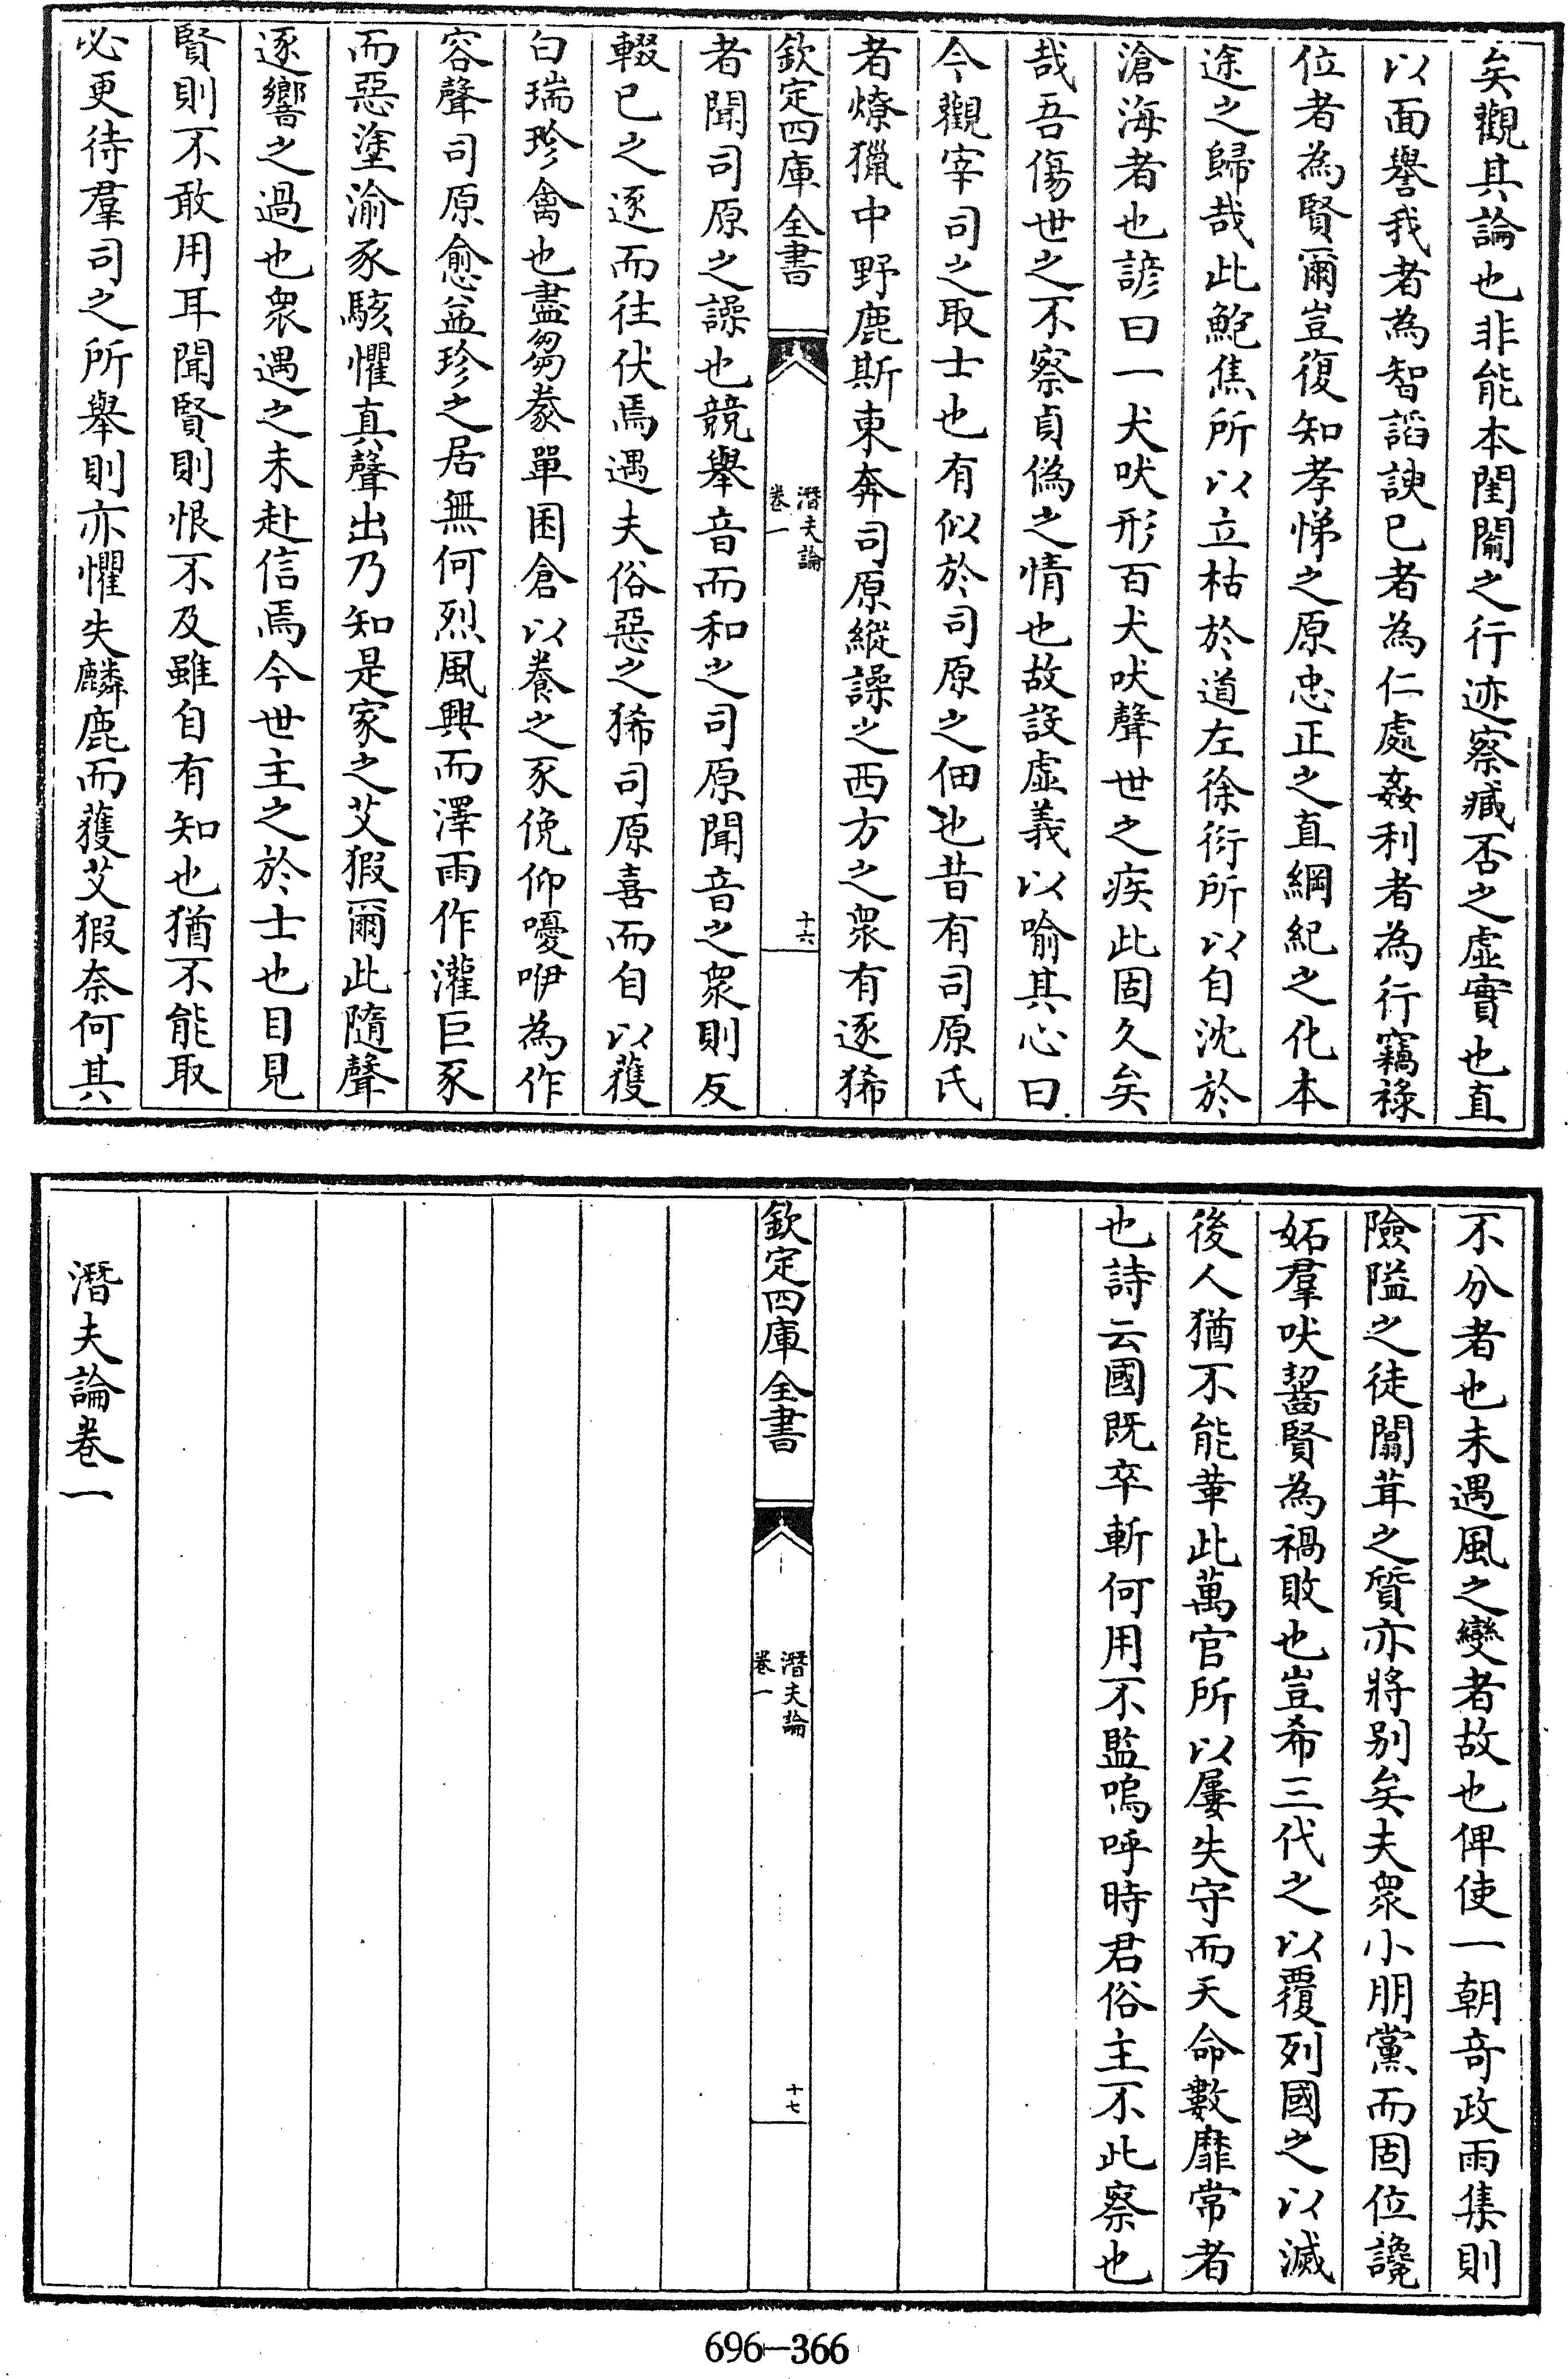 矣觀其論也非能本閨閫之行迹察臧否之虛實也直
以面譽我者為智謟諛已者為仁處姦利者為行竊祿
位者為賢爾豈復知孝悌之原忠正之直綱紀之化本
途之歸哉此鮑焦所以立枯於道左徐衍所以自沈於
滄海者也諺曰一犬吠形百犬吠聲世之疾此固久矣
哉吾傷世之不察貞偽之情也故設虛義以喻其心曰
今觀宰司之取士也有似於司原之佃也昔有司原氏
者燎獵中野鹿斯東奔司原縱譟之西方之衆有逐狶
欽定四庫全書
潛夫論
卷一
十六
者聞司原之譟也競舉音而和之司原聞音之衆則反
輟已之逐而往伏焉遇夫俗惡之狶司原喜而自以獲
白瑞珍禽也盡芻豢單囷倉以養之豕俛仰嚘咿為作
容聲司原愈益珍之居無何烈風興而澤雨作灌巨豕
而惡塗渝豕駭懼真聲出乃知是家之艾猳爾此隨聲
逐響之過也衆遇之未赴信焉今世主之於士也目見
賢則不敢用耳聞賢則恨不及雖自有知也猶不能取
必更待羣司之所舉則亦懼失麟鹿而獲艾猳奈何其
不分者也未遇風之變者故也俾使一朝奇政雨集則
險隘之徒闒茸之質亦將別矣夫衆小朋黨而固位讒
妬羣吠齧賢為禍敗也豈希三代之以覆列國之以滅
後人猶不能革此萬官所以屢失守而天命數靡常者
也詩云國既卒斬何用不監嗚呼時君俗主不此察也
欽定四庫全書
潛夫論
卷一
十七
潛夫論卷一
696-366